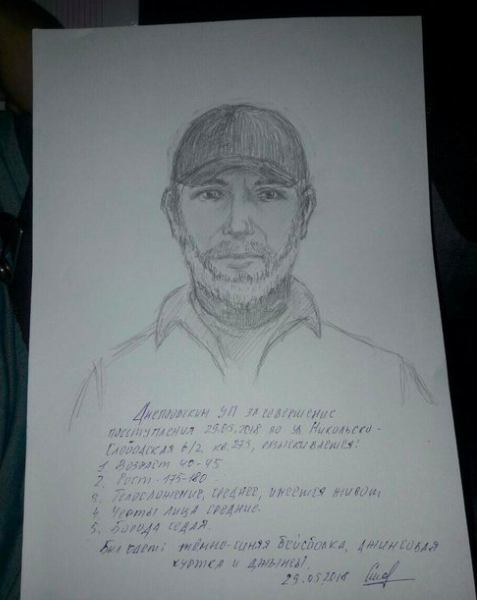 Днепровским УП за совершение
преступления 29.05.2018 по ул Никольско-
Слободская 6/2, кв. 273, разыскивается:
1. Возраст 40-45
2. Рост - 175-180
3. Телосложение, среднее, имеется живот
4. Черты лица средние.
5. Борода седая.
Был одет: тёмно-синяя бейсболка, джинсовая
куртка и джынсы.
29.05.2018